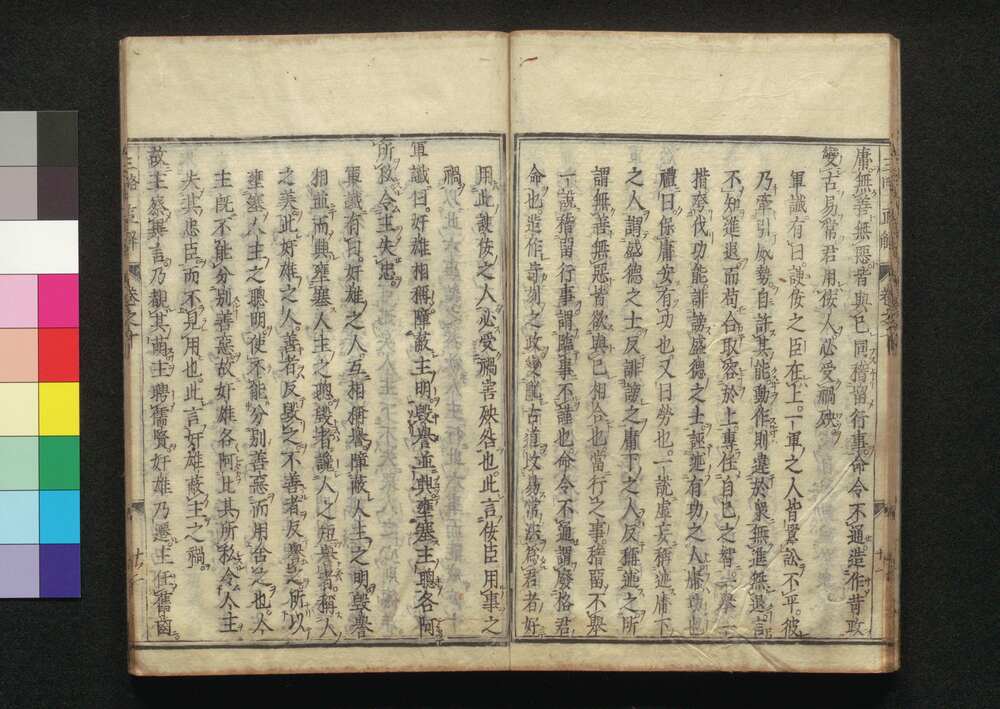 庸無善無惡者與己同稽留行事命令不通造作苛政
變古易常君用佞人必受禍殃
軍讖有曰諛佞之臣在上一軍之人皆置訟不平彼
乃牽引威勢自許其能動作則違於衆無進無退
不知進退而苟合取容於上專任自己之智一舉一
措矜伐功能誹謗盛德之士誣
有功之人
禮曰保庸安有功也又曰勞也一説虚妄稱述庸下
之人謂盛德之士反誹謗之庸下之人反稱述之所
謂無善無惡皆欲與己相合也當行之事稽留不舉
一説稽留行事謂臨事不謹也命令不通謂廢格君
命也造作苛刻之政變亂古道改易常法爲君者好
用此諛佞之人必受禍害殃咎也此言佞臣用事之
禍
軍讖曰奸雄相稱障蔽主明毀譽並興壅塞主聰各阿
所
令主失忠
軍讖有曰奸雄之人互相稱譽障蔽人主之明毀譽
相並而興壅塞人主之聰毀者讒人之短譽者稱人
之美此奸雄之人善者反毀之不善者反譽之所以
壅塞人主之聰明使不能分别善惡而用舍之也人
主既不能分别善惡故奸雄各阿比其所私令人主
失其忠臣而不見用也此言奸雄蔽主之禍
故主察異言乃覩其萌主聘儒賢奸雄乃遯主任舊齒